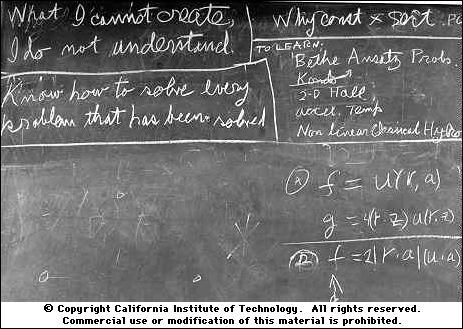 What I cannot create,
I do not understand.
Know how to solve every
problem that has been solved
Why const × sort . PO
TO LEARN:
Bethe Ansatz Probs.
Kondo
2-D Hall
accel. Temp
Non Linear Classical Hydro
(A) f = u(r, a)
g = 4(r·z) u(r, z)
(B) f = 2|r·a|(u·a)
© Copyright California Institute of Technology. All rights reserved.
Commercial use or modification of this material is prohibited.